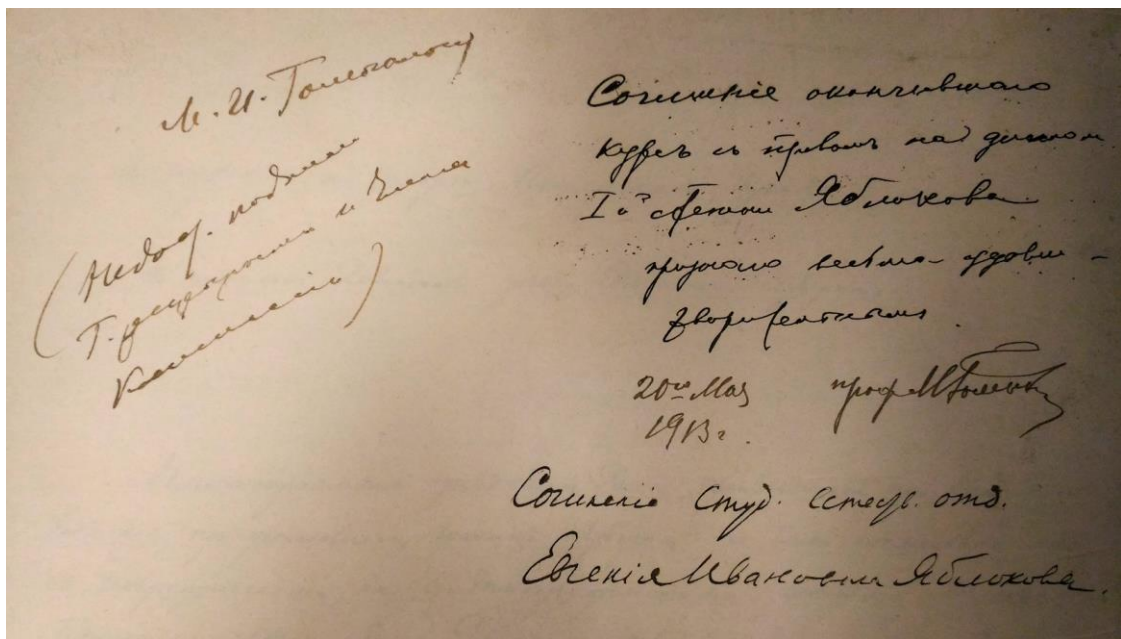 М. И. Голенкину
(Недост. подписи
Г. декана и Члена
Комиссии)
Сочиненiе окончившаго
курсъ съ правомъ на диплом
I ой степени Яблокова
признаю весьма удовле-
творительнымъ
20го Мая проф М Голенк
1913 г.
Сочиненiе студ. естеств. отд.
Евгенiя Ивановича Яблокова.